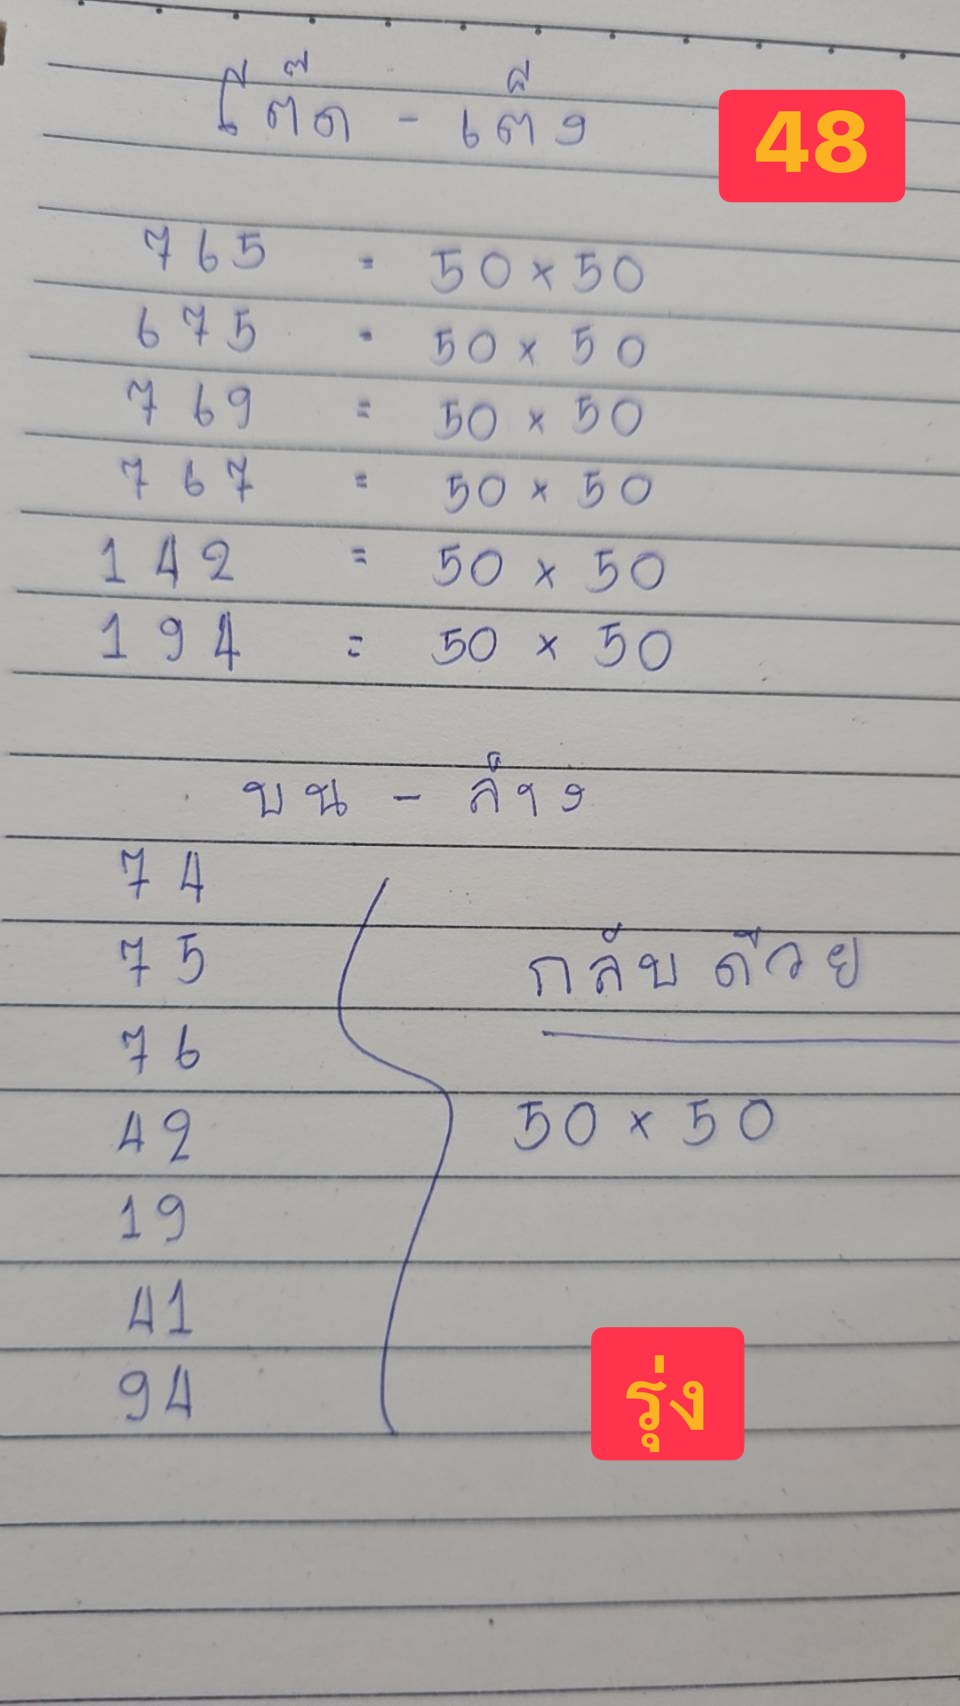 โต๊ด - เต็ง
48
765 = 50 × 50
675 = 50 × 50
769 = 50 × 50
767 = 50 × 50
142 = 50 × 50
194 = 50 × 50
บน - ล่าง
74
75
กลับด้วย
76
42
50 × 50
19
41
94
รุ่ง